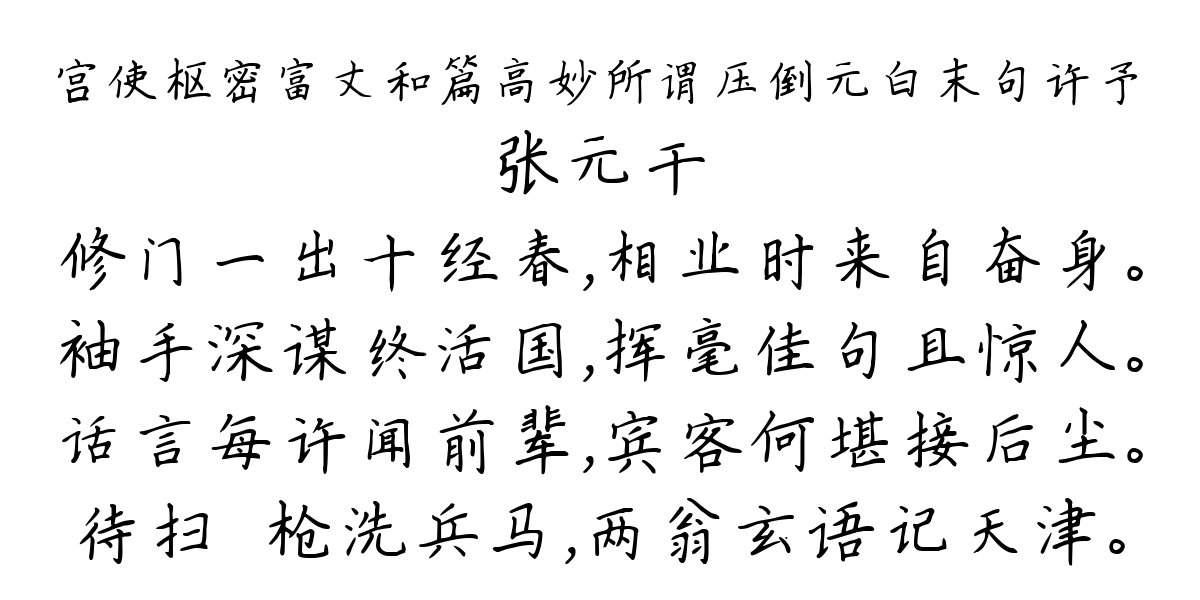 宫使枢密富丈和篇高妙所谓压倒元白末句许予
张元干
修门一出十经春,相业时来自奋身。
袖手深谋终活国,挥毫佳句且惊人。
话言每许闻前辈,宾客何堪接后尘。
待扫 枪洗兵马,两翁玄语记天津。